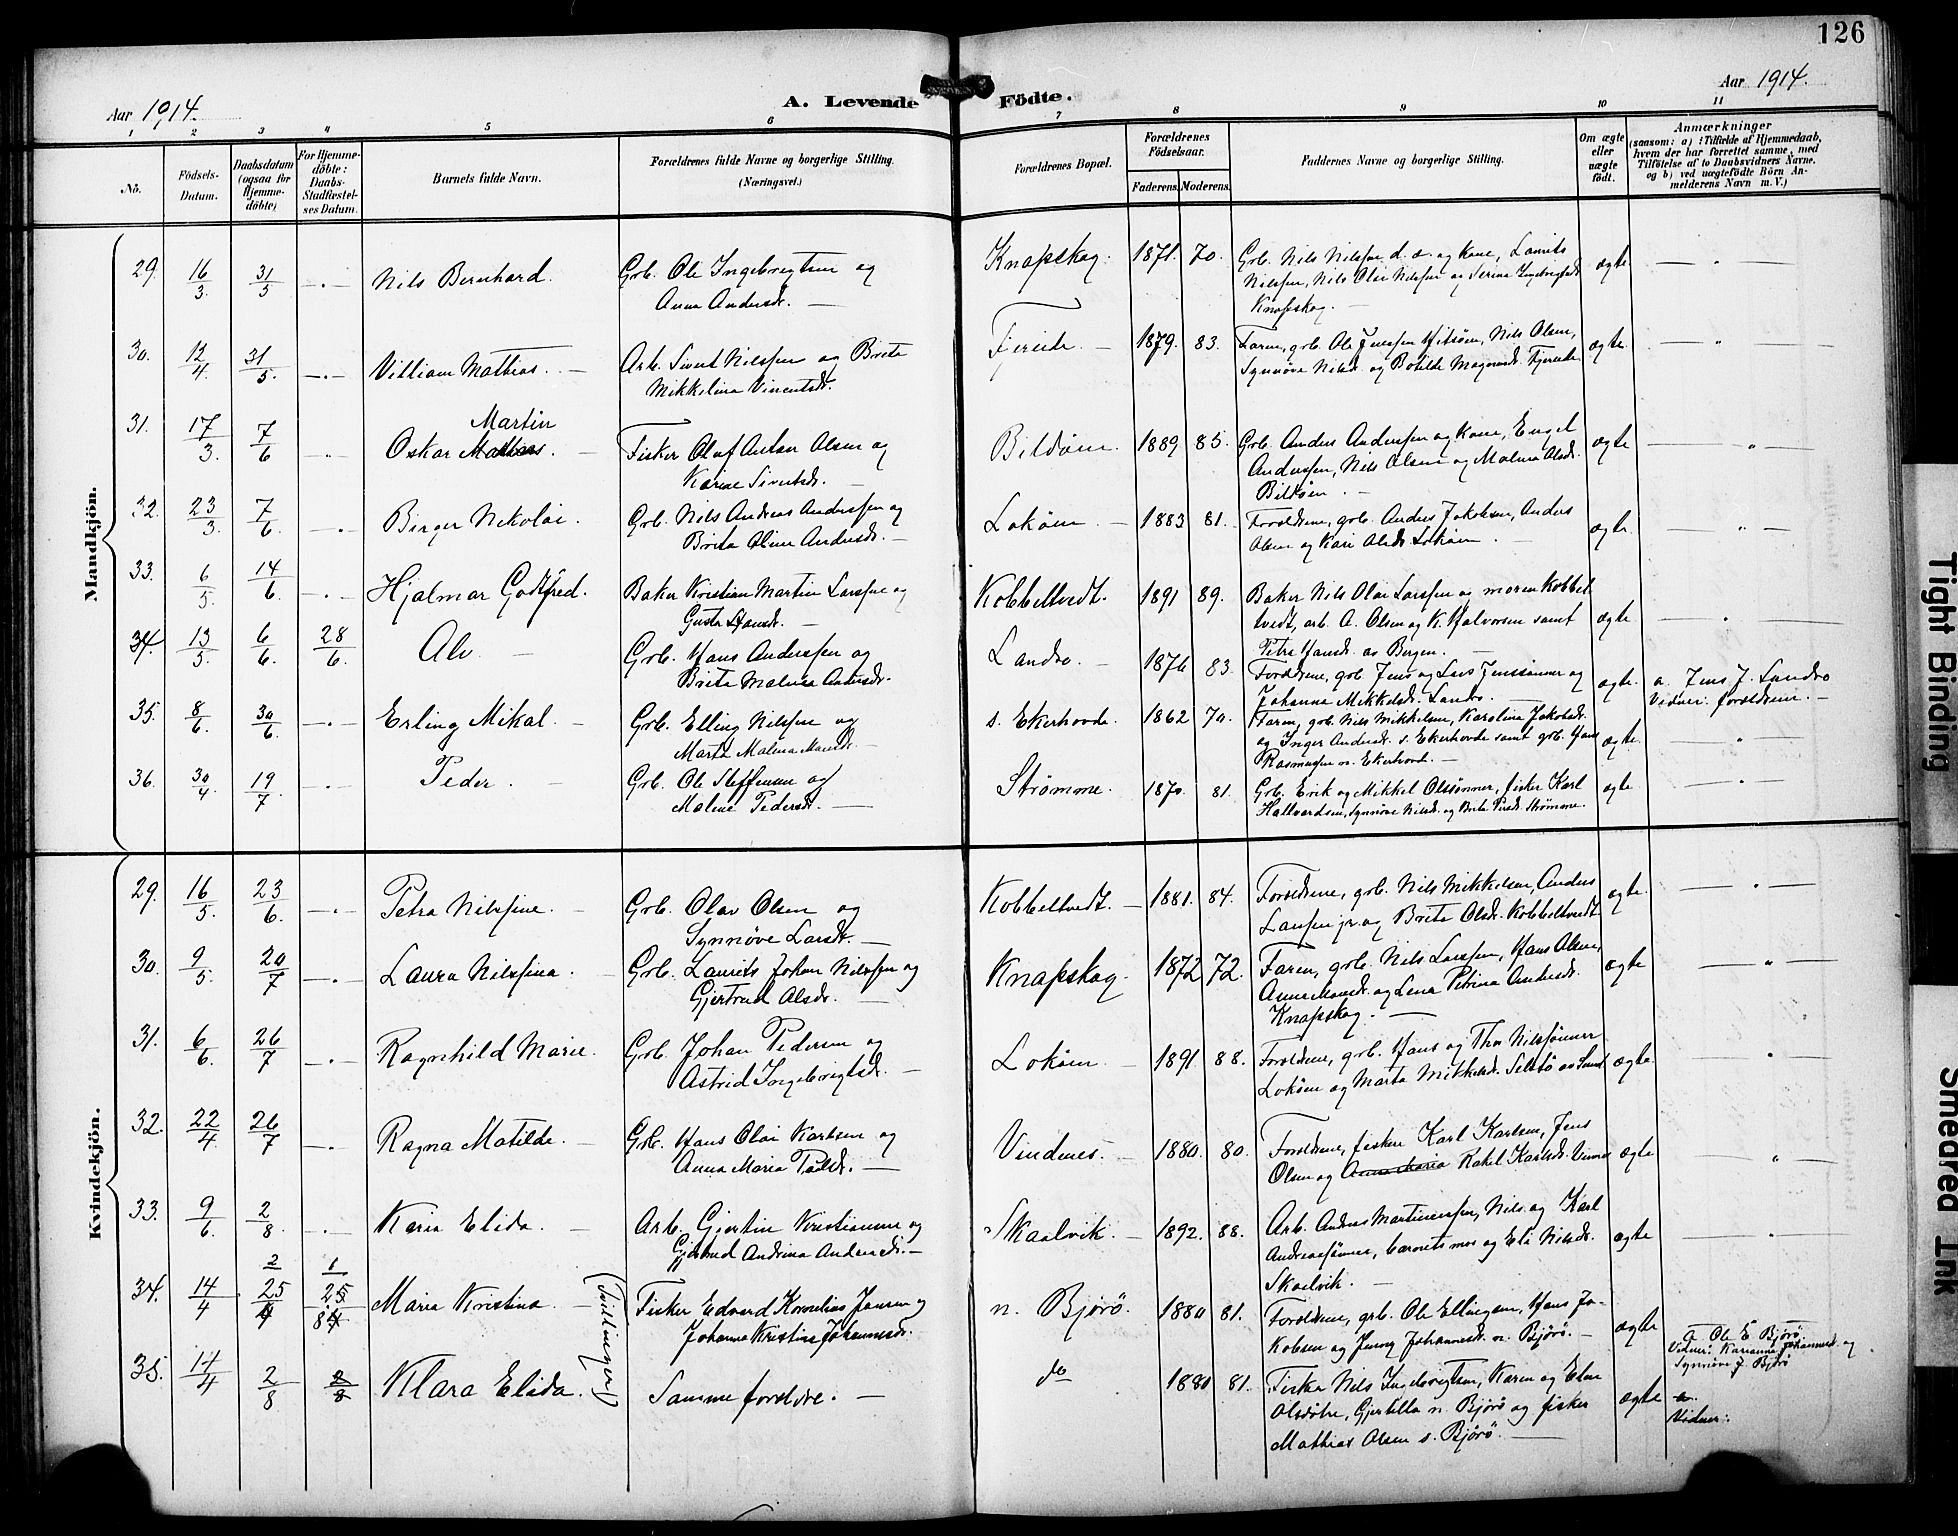 126
Aar 1914.
A. Levende Födte.
Aar 1914.
1 2 3 4 5 6 7 8 9 10 11
No.
Födsels-Datum.
Daabsdatum (ogsaa for Hjemme-döbte)
For Hjemme-döbte: Daabs-Stadfæstel-ses Datum.
Barnets fulde Navn.
Forældrenes fulde Navne og borgerlige Stilling.
(Næringsvei.)
Forældrenes Bopæl.
Forældrenes Födselsaar.
Faderens. Moderens.
Faddernes Navne og borgerlige Stilling.
Om ægte eller uægte født.
Anmærkninger
(saasom: a) i Tilfælde af Hjemmedaab,
hvem der har forrettet samme, med
Tilföielse af to Daabsvidners Navne,
og b) ved uægtefödte Börn An-
melderens Navn m. V.)
Mandkjön.
29. 16/3. 31/5 Nils Bernhard. Grb. Ole Ingebregtsen og
Anna Andersdr. —
Knapskog. 1871. 70. Grb. Nils Nilssen d. æ. og kone, Laurits
Nilssen, Nils Olai Nilssen og Serina Ingebregtsdr
Knapskog. —
ægte
30. 12/4. 31/5. Villiam Mathias. — Arb. Sivert Nilssen og Brita
Mikkelina Vincentsdr.
Fjereide — 1879. 83. Faren, grb. Ole Jenssen Hitsöen, Nils Olsen,
Synnöve Nilsd. og Botilde Magnusd. Fjereide
ægte.
31. 17/3. 7/6 Martin
Oskar Mathias. — Fisker Olaf Anton Olsen og
Karine Sivertsdr. —
Bildöen. 1889 85. Grb. Anders Anderssen og kone, Engel
Anderssen, Nils Olsen og Malena Olsdr.
Bildöen. —
ægte
32. 23/3. 7/6. Birger Nikolai. Grb. Nils Andreas Anderssen og
Brita Oline Andersdr. —
Loköen — 1883 81. Foreldrene, grb. Anders Jakobsen, Anders
Olsen og Kari Olsdr Loköen.
ægte
33. 6/5. 14/6. Hjalmar Godtfred. Baker Kristian Martin Larssen og
Gusta Hansdr. —
Kobbeltvedt. 1891 89. Baker Nils Olai Larssen og moren Kobbelt
vedt, arb. A. Olsen og K. Halvorsen samt
Petra Hansd. av Bergen. —
ægte
34. 13/5. 6/6. 28/6. Alv. — Grb. Hans Anderssen og
Brita Malena Andersdr.
Landro. — 1876 83. Foreldrene, grb. Jens og Lars Jenssönner og
Johanna Mikkelsd. Landro. —
ægte. a. Jens J. Landro
Vidner: foreldrene. —
35. 8/6. 30/6. Erling Mikal. — Grb. Elling Nilssen og
Marta Malena Monsdr. —
s. Ekerhovde. 1862 70. Faren, grb. Nils Mikkelsen, Karolina Jakobsd.
og Inger Andersd. s. Ekerhovde samt grb. Hans
Rasmussen n. Ekerhovde. —
ægte.
36. 30/4 19/7. Peder. — Grb. Ole Steffensen og
Malene Pedersdr. —
Strömme. 1870. 81. Grb. Erik og Mikkel Olssönner, fisker Karl
Hallvardsen, Synnöve Nilsd. og Brita Persd. Strömme.
ægte
Kvindekjön.
29. 16/5. 23/6. Petra Nilssine. — Grb. Olav Olsen og
Synnöve Larsdr. —
Kobbeltvedt. — 1881. 84. Foreldrene, grb. Nils Mikkelsen, Anders
Larssen jr. og Brita Olsdr. Kobbeltvedt.
ægte
30. 9/5. 20/7 Laura Nilssina. Grb. Laurits Johan Nilssen og
Gjertrud Olsdr. —
Knapskog. 1872 72. Faren, grb. Nils Larssen, Hans Olsen,
Anna Monsdr. og Lena Petrina Andersd.
Knapskog. —
ægte
31. 6/6. 26/7 Ragnhild Marie. Grb. Johan Pedersen og
Astrid Ingebrigtsd. —
Loköen. — 1891. 88. Foreldrene, grb. Hans og Thor Nilssönner
Loköen og Marta Mikkelsd. Selstö av Sund.
ægte.
32. 22/4. 26/7 Ragna Matilde. — Grb. Hans Olai Karlsen og
Anna Maria Pålsdr. —
Vindenes. — 1880. 80. Foreldrene, fiskere Karl Karlsen, Jens
Olsen og Anna Maria Rakel Karlsd. Vinnes
ægte
33. 9/6. 2/8 Karia Elida. — Arb. Gjertin Kristiansen og
Gjertrud Andrina Andersdr. —
Skaalvik. — 1892. 88. Arb. Anders Martinussen, Nils og Karl
Andreassönner, barnets mor og Eli Nilsdr.
Skaalvik. —
ægte
34. 14/4 25/4 25/4 Maria Kristina. — (Tvillinger) Fisker Edvard Kornelius Jansen og
Johanna Kristine Johannesdr.
n. Björö. 1880 81. Foreldrene, grb. Ole Ellingsen, Hans Ja-
kobsen og Jenny Johannesd. n. Björö. —
ægte a. Ole E Björö.
Vidner: Karianna Johannesd. og
Synnöva J. Björö
35. 14/4 2/8 2/8 Klara Elida. Samme foreldre. —
do 1880 81. Fisker Nils Ingebrigtsen, Karen og Eline
Olsdötre, Gjertilla n. Björö og fisker
Mathias Olsen s. Björö. —
ægte a.
Vidner:
Tight Binding
Smeared Ink